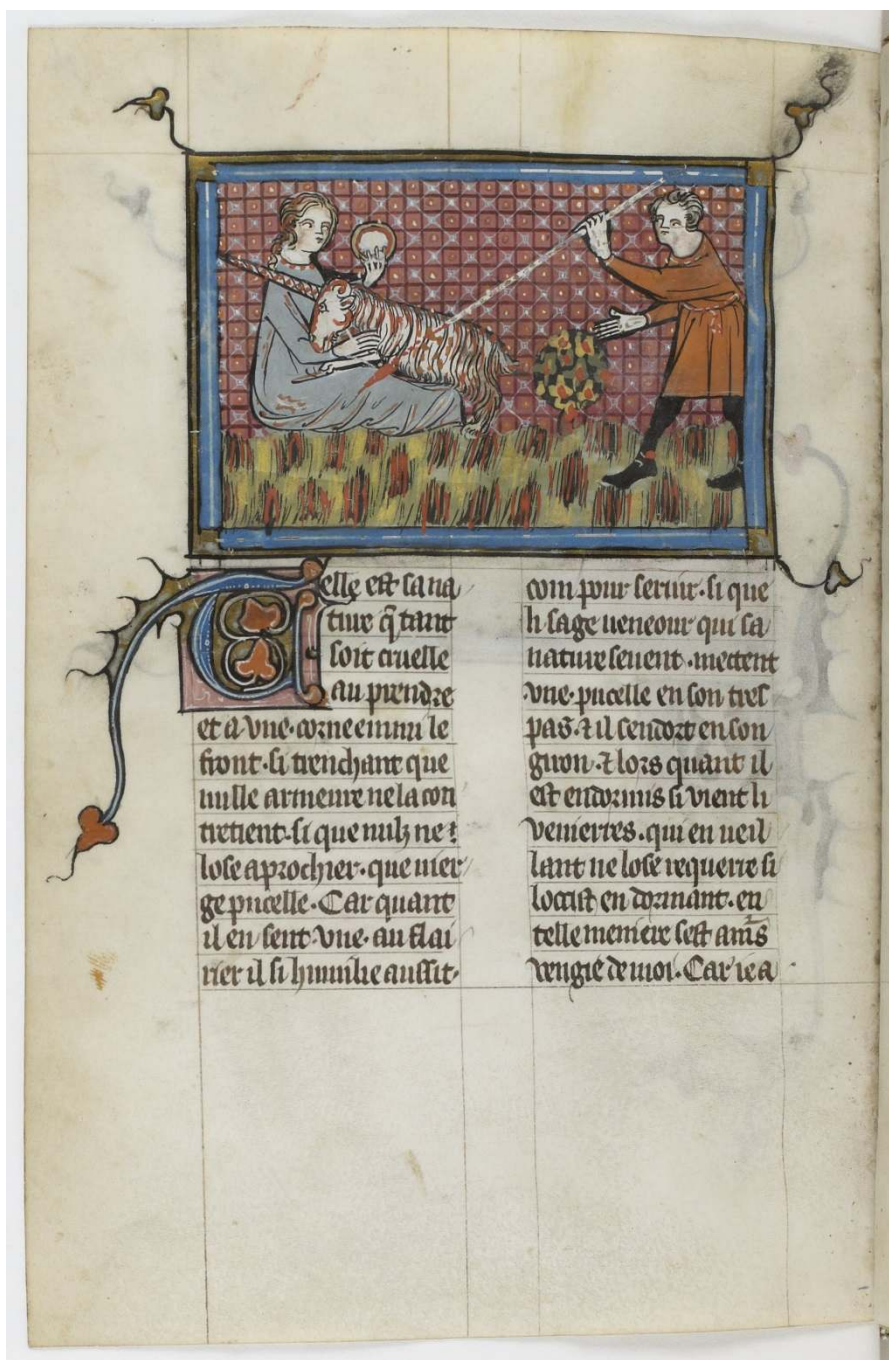 Telle est sa na
ture q̃ tant
soit cruelle
au prendre
et a vne corne enmi le
front. si trenchant que
nulle armeure ne la con
tretient. si que nulz ne
lose aprochier. que vier
ge pucelle. Car quant
il en sent vne. au flai
rier il si humilie aussit.
com pour seruir. si que
li sage veneour qui sa
nature seuent. mettent
vne. pucelle en son tres
pas. ⁊ il sendort en son
giron. ⁊ lors quant il
est endormis si vient li
venierres. qui en veil
lant ne lose requerre si
locist en dormant. en
telle meniere sest am̃s
vengie de moi. Car ie a